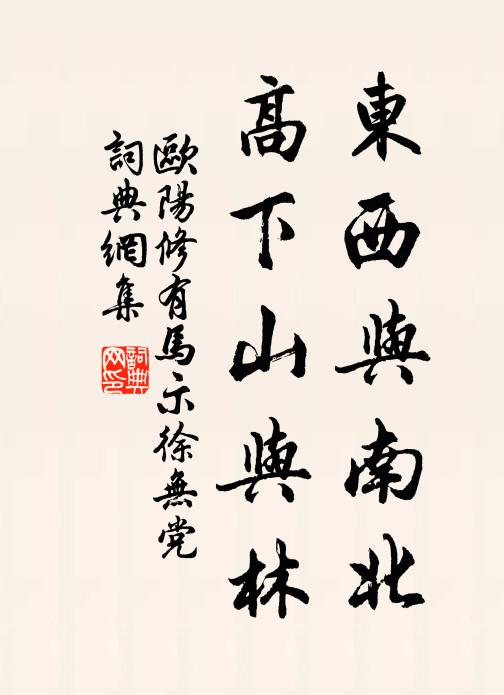 東西與南北
高下山與林
歐陽修有馬示徐無党
詞典網集
詞典網印